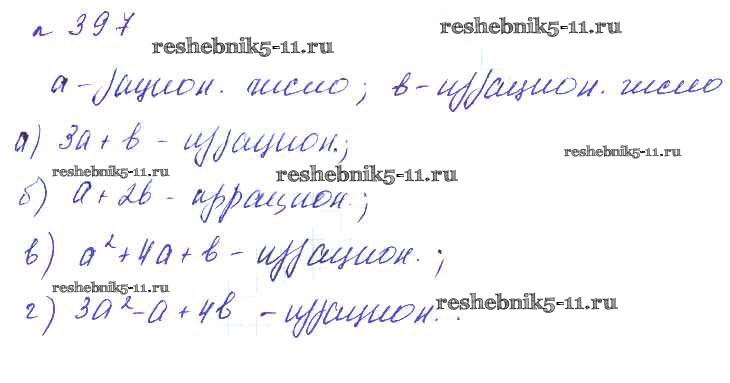 № 397
reshebnik5-11.ru reshebnik5-11.ru
а - рацион. число; в - иррацион. число
а) 3а + в - иррацион.;
reshebnik5-11.ru reshebnik5-11.ru reshebnik5-11.ru
б) а + 2в - иррацион.;
в) а² + 4а + в - иррацион.;
reshebnik5-11.ru reshebnik5-11.ru
г) 3а² - а + 4в - иррацион.